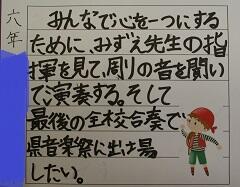 六年
みんなで心を一つにする
ために、みずえ先生の指
揮を見て、周りの音を聞い
て、演奏する。そして
最後の全校合奏で
県音楽祭に出る場
したい。